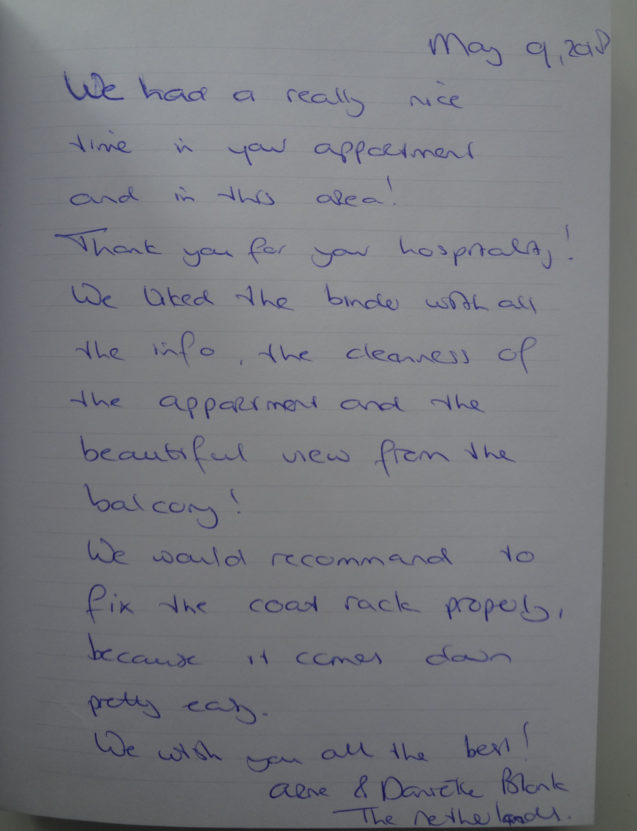 May 9, 2018
We had a really nice
time in your appartment
and in this area!
Thank you for your hospitality!
We liked the binder with all
the info, the cleanness of
the appartment and the
beautiful view from the
balcony!
We would recommand to
fix the coat rack properly,
because it comes down
pretty easy.
We wish you all the best!
& Daniëlle Blonk
The Netherlands.